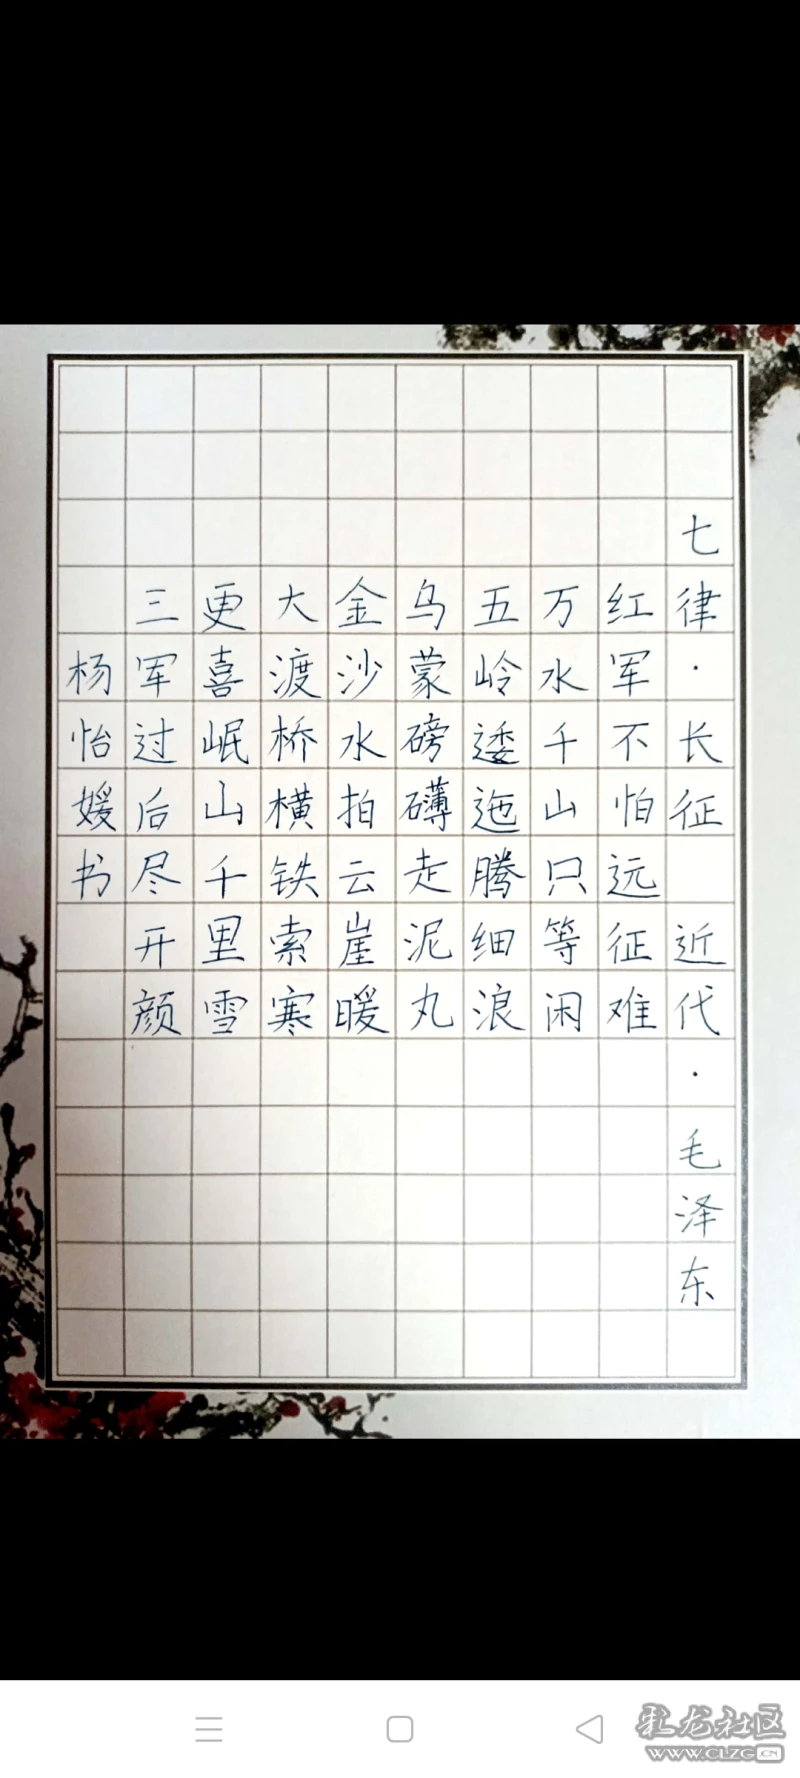 七律·长征 近代·毛泽东
红军不怕远征难
万水千山只等闲
五岭逶迤腾细浪
乌蒙磅礴走泥丸
金沙水拍云崖暖
大渡桥横铁索寒
更喜岷山千里雪
三军过后尽开颜
杨怡媛书
彩龙社区
www.CLZG.CN